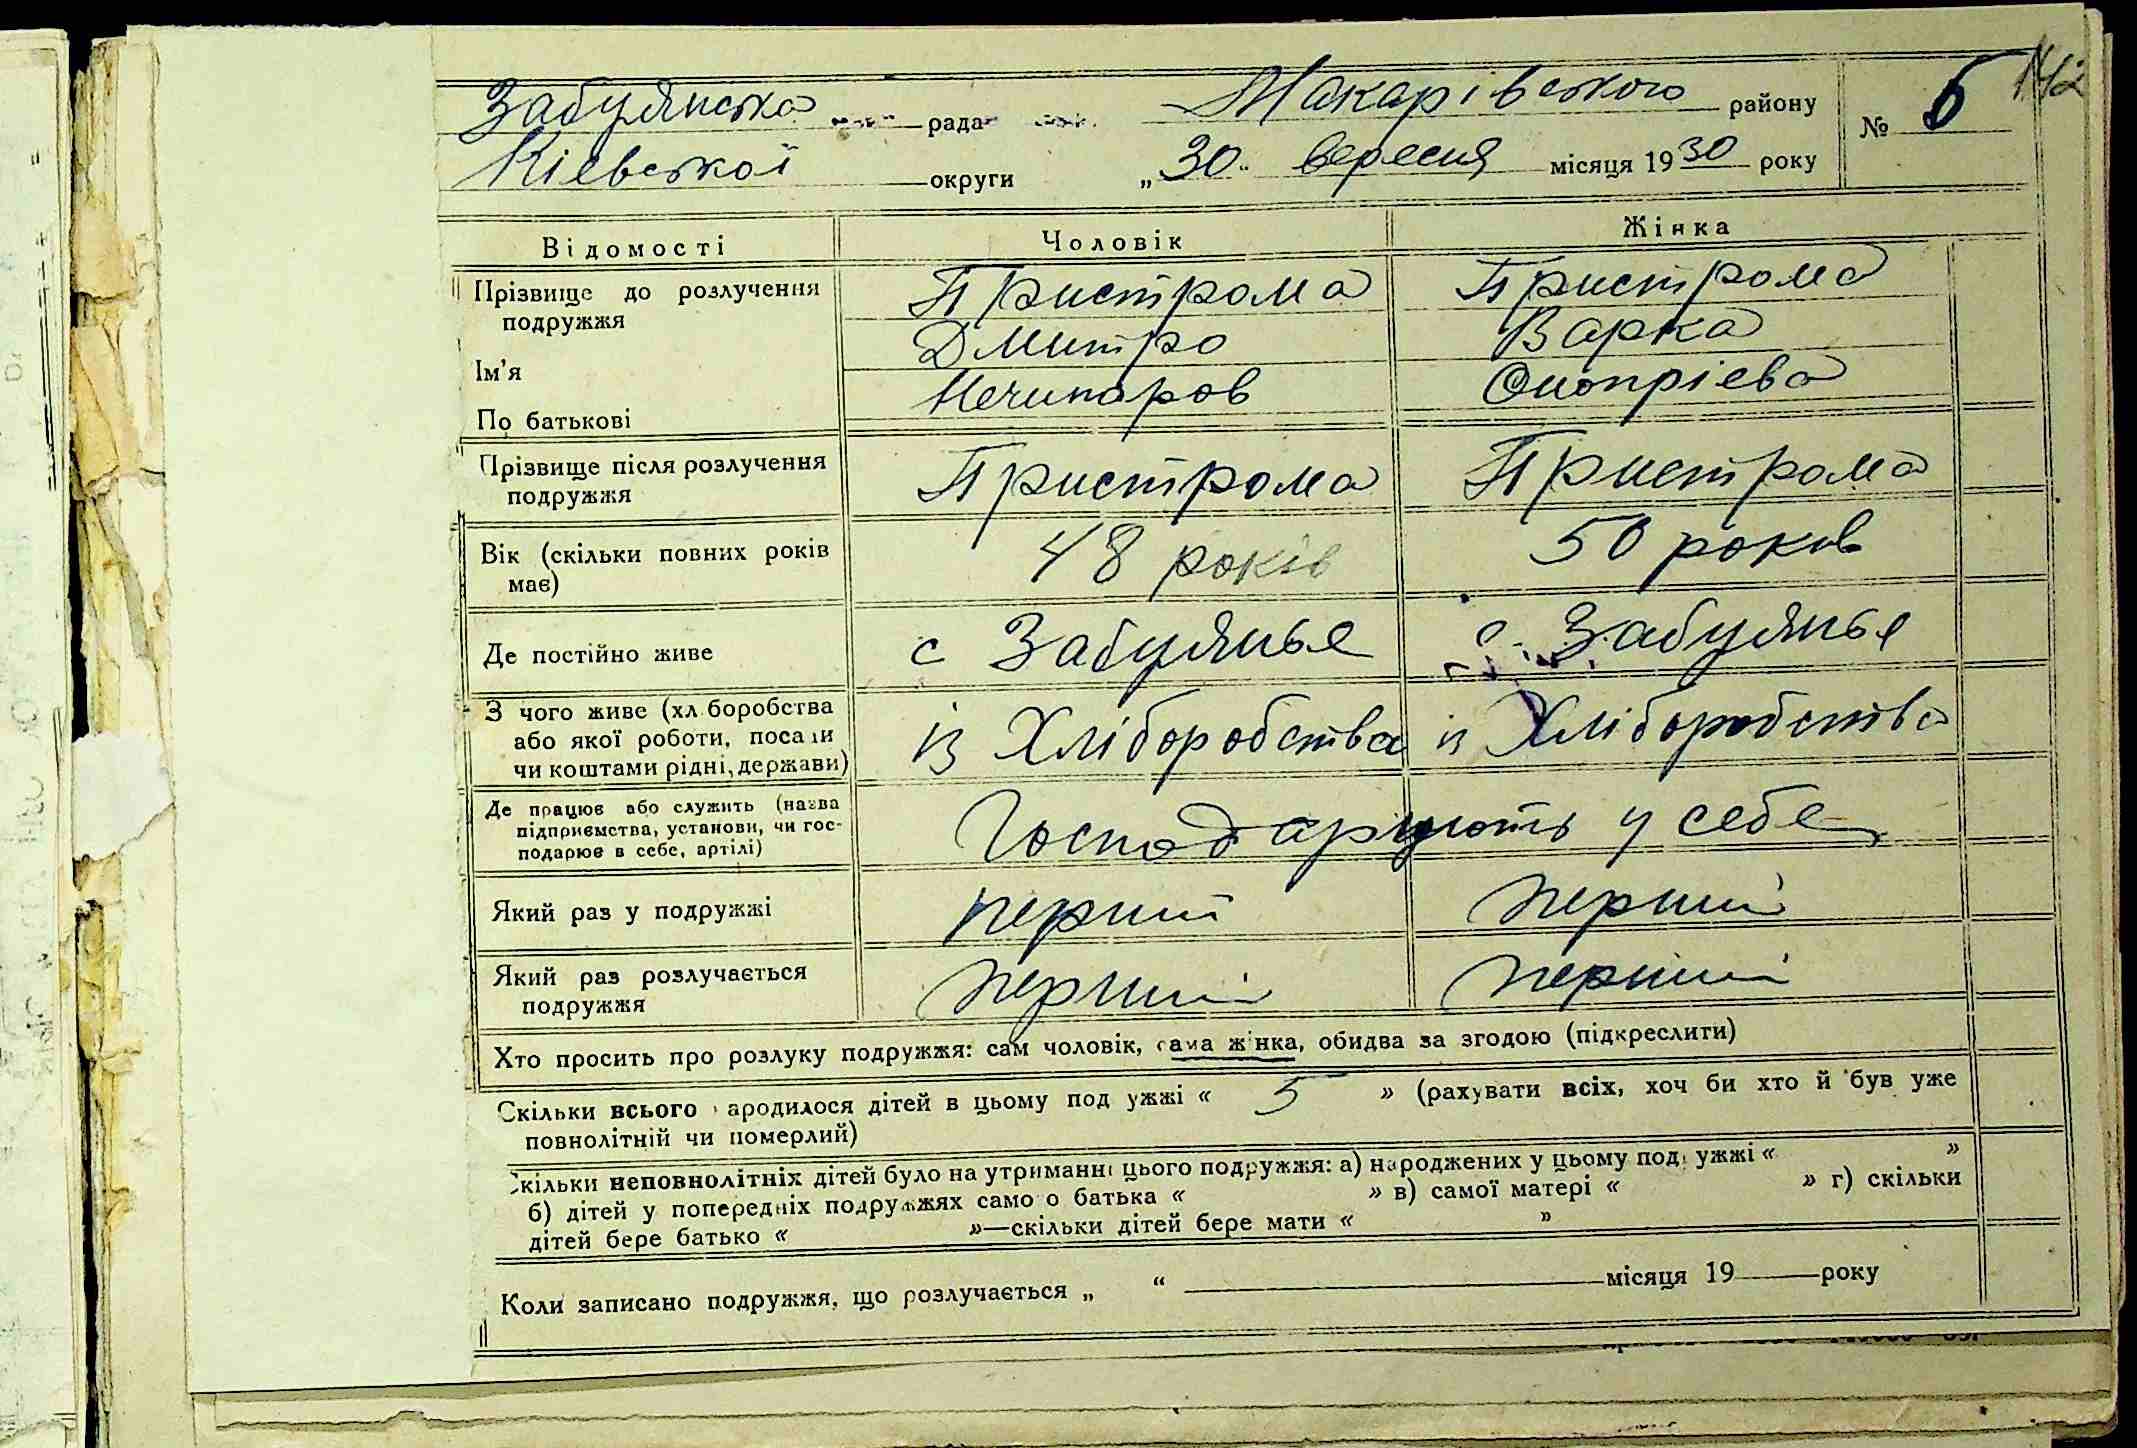 142
Забуянська рада Макарівського району № 6
Кіевської округи „30" вересня місяця 1930 року
Відомості Чоловік Жінка
Прізвище до розлучення Пристрома Пристрома
подружжя
Ім'я Дмитро Варка
По батькові Нечипоров Онопріева
Прізвище після розлучення Пристрома Пристрома
подружжя
Вік (скільки повних років 48 років 50 років
має)
Де постійно живе с Забуянье с. Забуянье
З чого живе (хл боробства
або якої роботи, посади із Хліборобства із Хліборобства
чи коштами рідні, держави)
Де працює або служить (назва
підприємства, установи, чи гос- Господарують у себе
подарює в себе, артілі)
Який раз у подружжі перший перший
Який раз розлучається перший перший
подружжя
Хто просить про розлуку подружжя: сам чоловік, сама жінка, обидва за згодою (підкреслити)
Скільки всього народилося дітей в цьому подружжі « 5 » (рахувати всіх, хоч би хто й був уже
повнолітній чи померлий)
Скільки неповнолітніх дітей було на утриманні цього подружжя: а) народжених у цьому подружжі « »
б) дітей у попередніх подружжях самого батька « » в) самої матері « » г) скільки
дітей бере батько « »—скільки дітей бере мати « »
Коли записано подружжя, що розлучається „ “ місяця 19 року